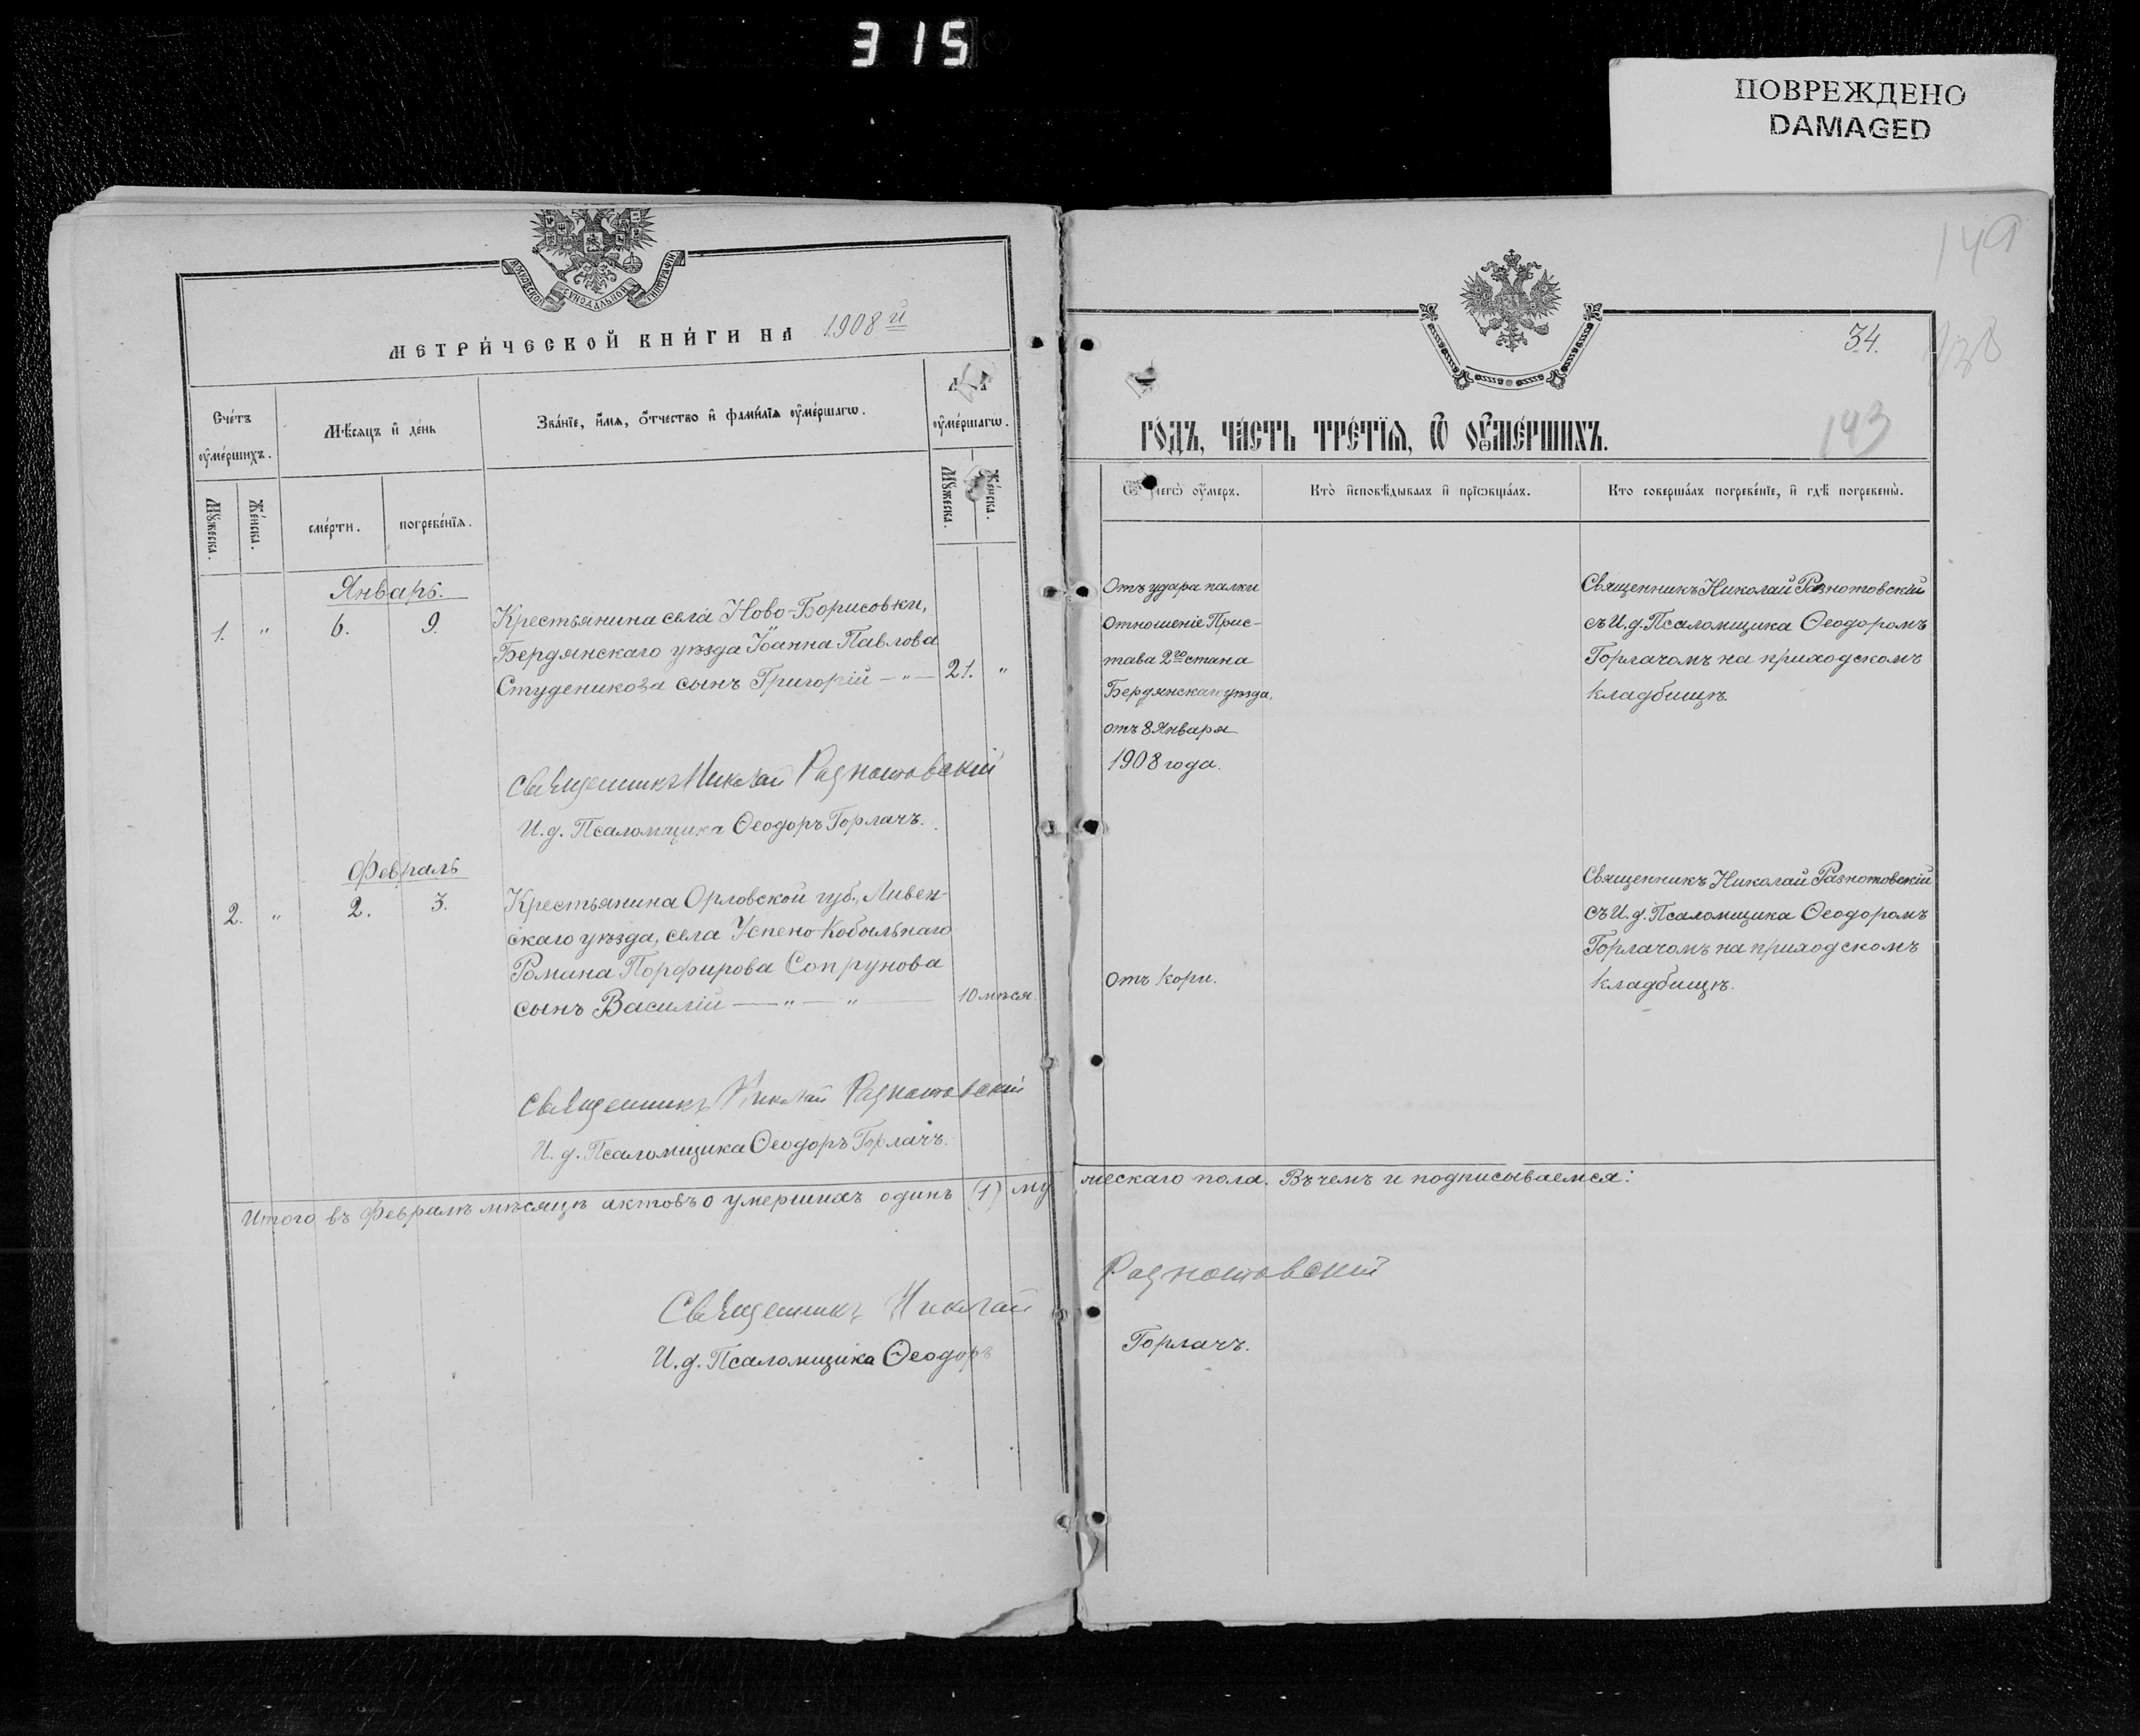 315
ПОВРЕЖДЕНО
DAMAGED
МОСКОВСКОЙ СѴНОДАЛЬНОЙ ТИПОГРАФІИ
МЕТРИ́ЧЕСКОЙ КНИ́ГИ НА 1908 й
Сче́тъ ᲂу҆ме́ршихъ.
Мѣ́сяцъ и҆ де́нь
Зва́нїе, и҆́мя, ѻ҆́тчество и҆ фами́лїя ᲂу҆ме́ршагѡ.
ᲂу҆ме́ршагѡ.
Мꙋ́жеска.
Же́нска.
сме́рти.
погребе́нїя.
Мꙋ́жеска.
Же́нска.
Январь.
1. " 6. 9.
Крестьянина села Ново-Борисовки,
Бердянскаго уѣзда Іоанна Павлова
Студеникова сынъ Григорій — " — 21. "
Священникъ Николай Разнотовскій
И.д. Псаломщика Ѳеодоръ Горлачъ.
Февраль
2. " 2. 3.
Крестьянина Орловской губ., Ливен-
скаго уѣзда, села Успено-Кобыльнаго
Романа Порфирова Сопрунова
сынъ Василій — " — " — 10 мѣся.
Священникъ Николай Разнотовскій
И. д. Псаломщика Ѳеодоръ Горлачъ.
Итого въ Февралѣ мѣсяцѣ актовъ о умершихъ одинъ (1) му
Священникъ Николай
И.д. Псаломщика Ѳеодоръ
149
34.
193
ГО́ДЪ, ЧА́СТЬ ТРЕ́ТЇЯ, Ѿ ОУ҆МЕ́РШИХЪ.
чегѡ̀ ᲂу҆́меръ.
Кто̀ и҆сповѣ́дывалъ и҆ прїѡбща́лъ.
Кто соверша́лъ погребе́нїе, и҆ гдѣ̀ погребены̀.
Отъ удара палки
Отношеніе Прис-
тава 2го стана
Бердянскаго уѣзда,
отъ 8 Января
1908 года.
Священникъ Николай Разнотовскій
съ И.д. Псаломщика Ѳеодоромъ
Горлачомъ на приходскомъ
кладбищѣ.
Отъ кори.
Священникъ Николай Разнотовскій
съ И.д. Псаломщика Ѳеодоромъ
Горлачомъ на приходскомъ
кладбищѣ.
ческаго пола. Въ чемъ и подписываемся:
Разнотовскій
Горлачъ.